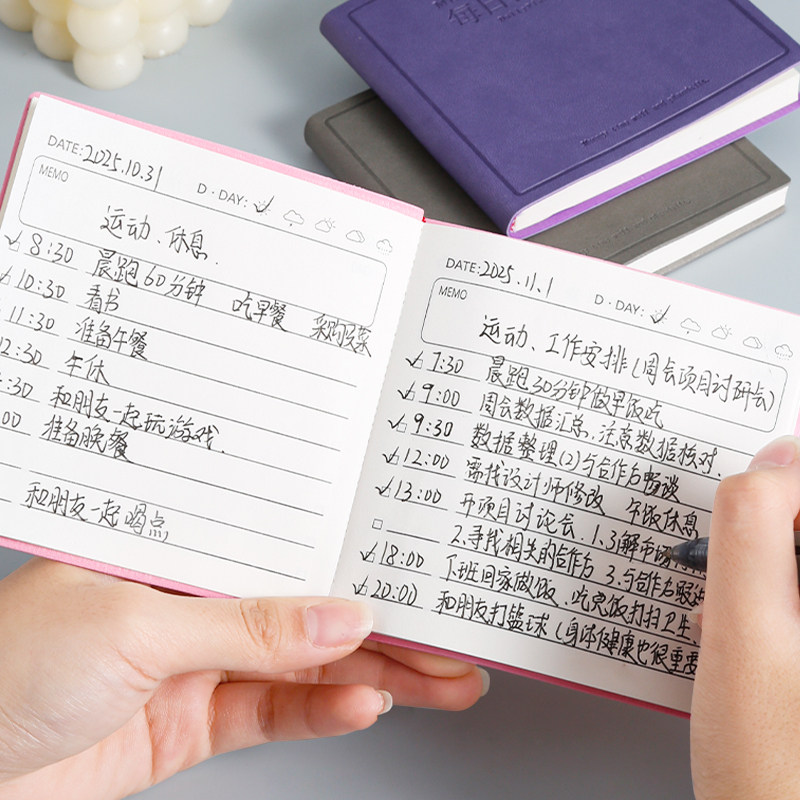 每日
DATE: 2025.10.31 D·DAY:
MEMO
运动、休息.
8:30 晨跑60分钟 吃早餐 采购蔬菜
10:30 看书
11:30 准备午餐
2:30 午休
:30 和朋友一起玩游戏.
00 准备晚餐
和朋友一起喝点
DATE: 2025.11.1 D·DAY:
MEMO
运动、工作安排(周会项目讨研会)
7:30 晨跑30分钟做早饭吃
9:00 周会数据汇总,注意数据核对.
9:30 数据整理(2)与合作方畅谈
12:00 需找设计师修改 午饭休息
13:00 开项目讨论会.1.了解市场
2.寻找相关的合作方 3.与合作方
18:00 下班回家做饭.吃完饭打扫卫生
20:00 和朋友打篮球(身体健康也很重要